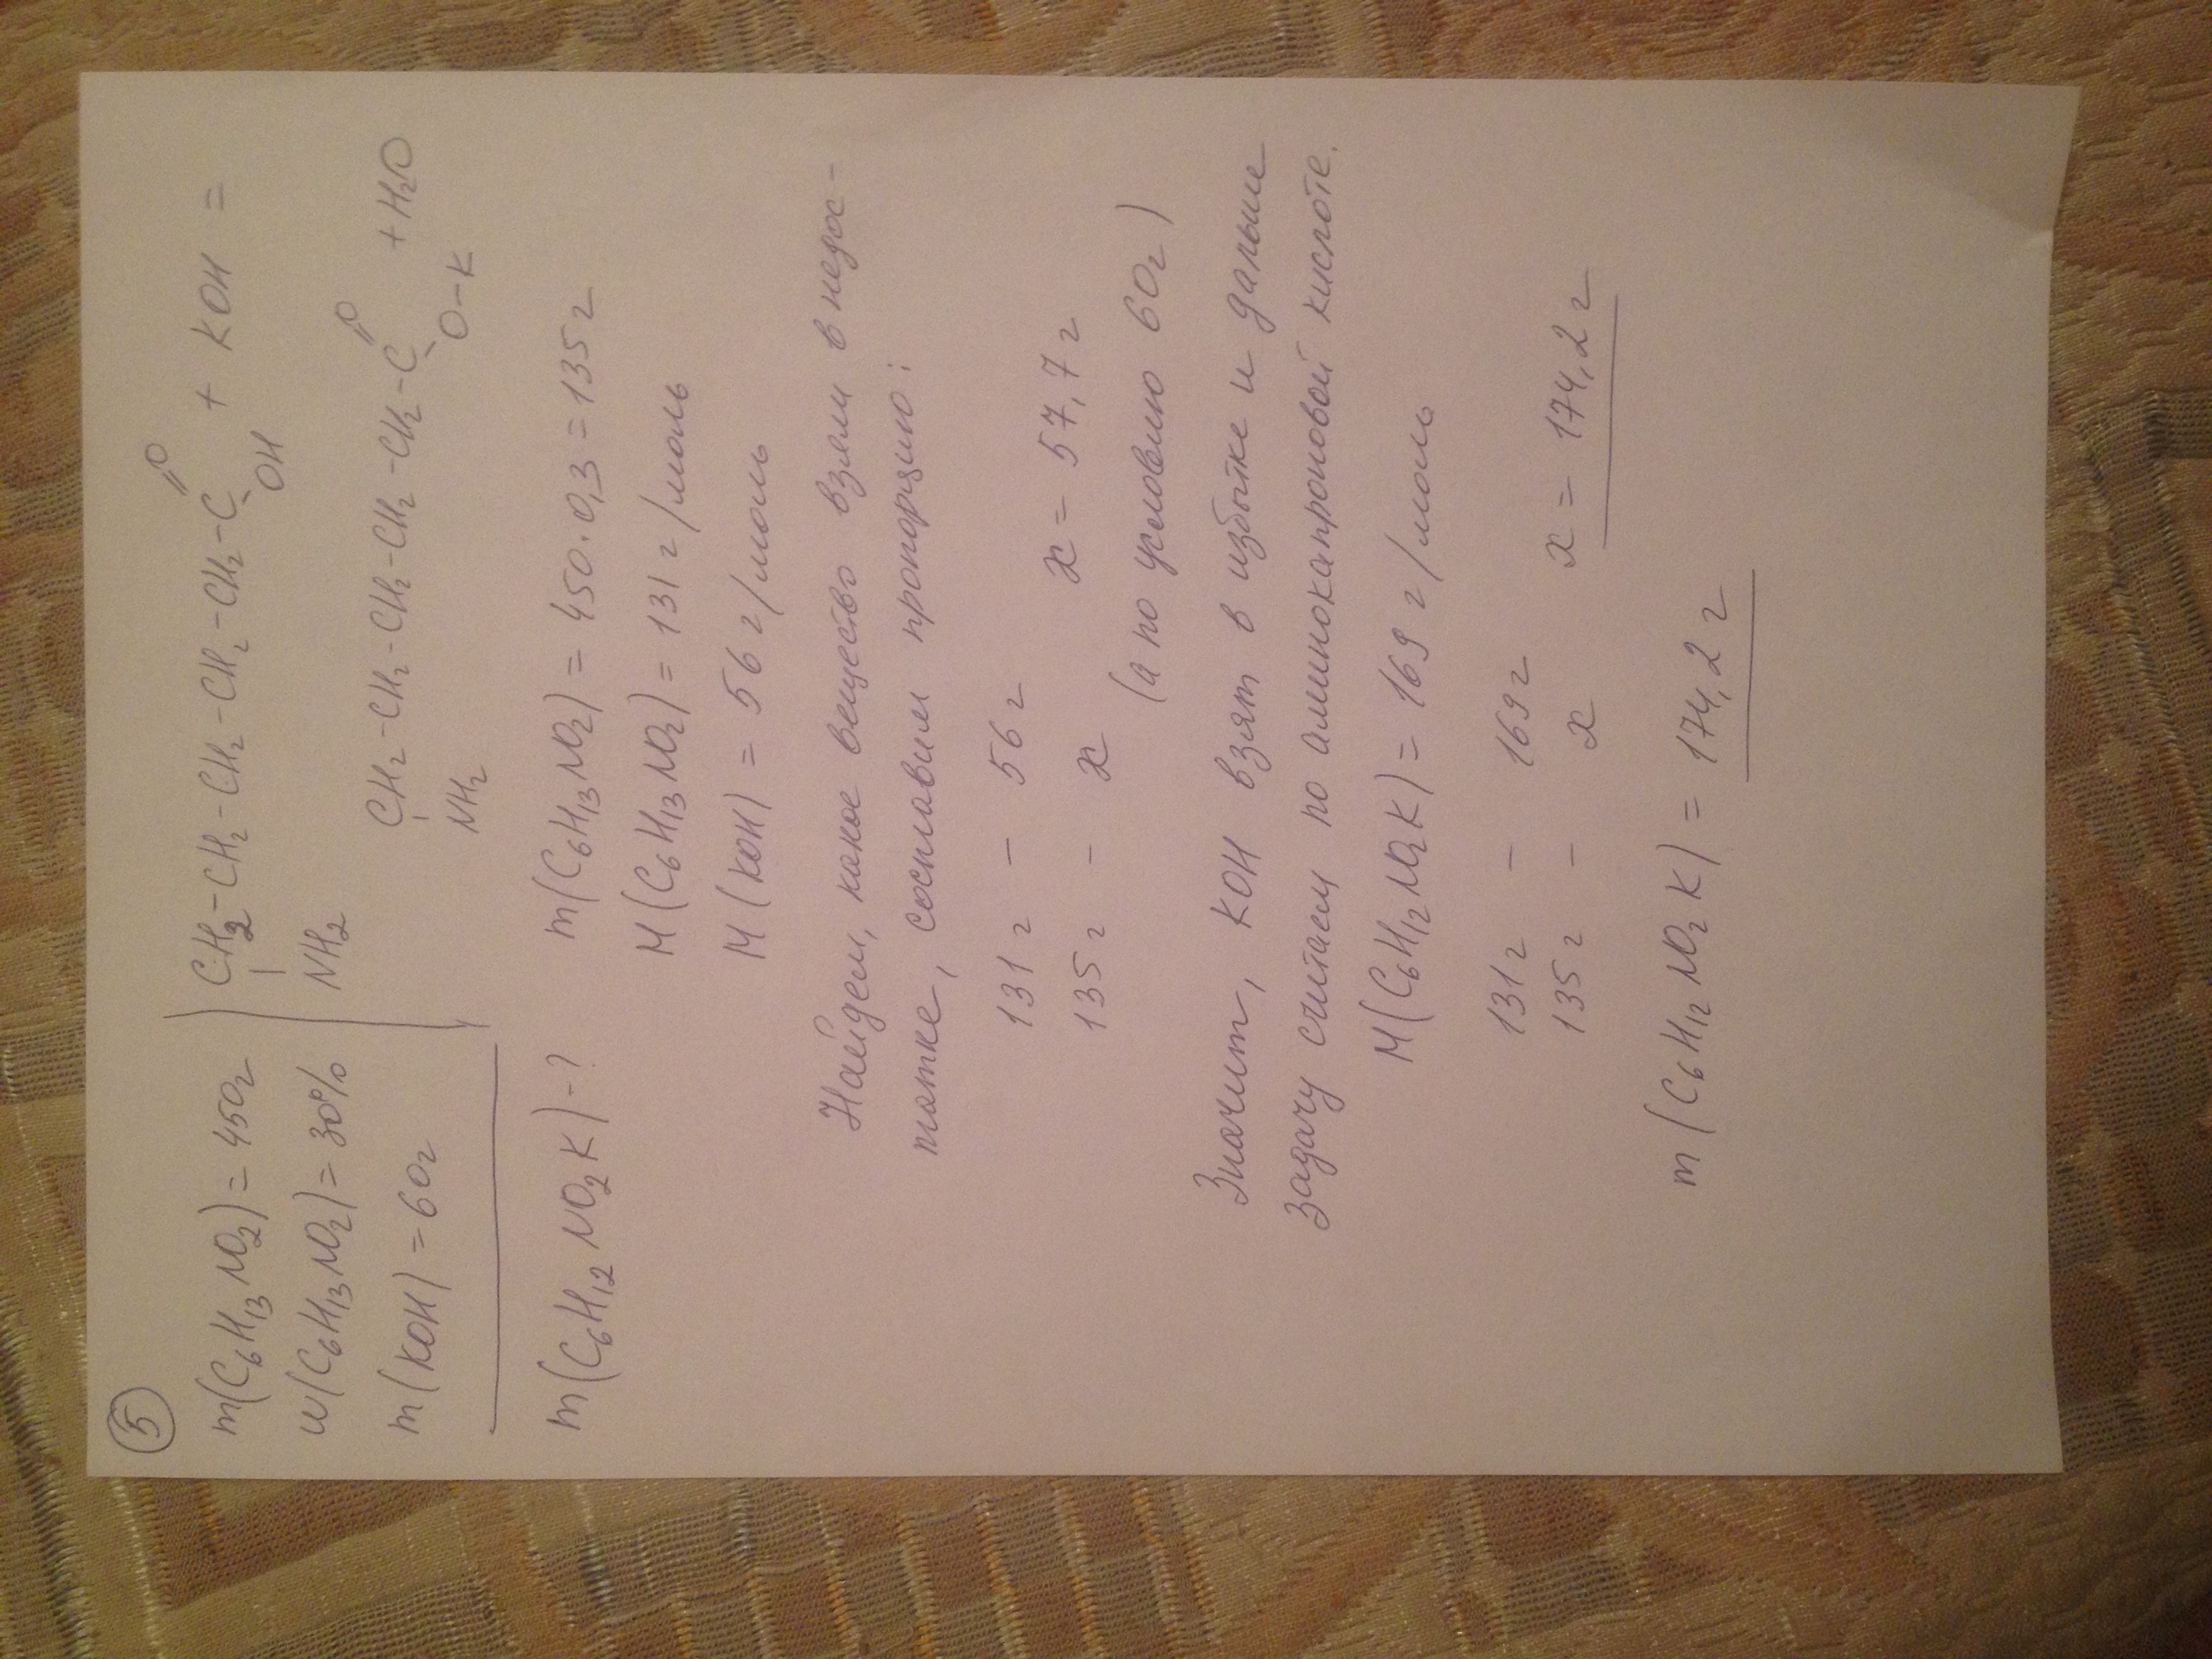 5
m(C₆H₁₃NO₂) = 450г
w(C₆H₁₃NO₂) = 30%
m(KOH) = 60г
m(C₆H₁₂NO₂K) - ?
CH₂-CH₂-CH₂-CH₂-CH₂-C + KOH =
O
OH
NH₂
CH₂-CH₂-CH₂-CH₂-CH₂-C + H₂O
O
O-K
NH₂
m(C₆H₁₃NO₂) = 450·0,3 = 135г
M(C₆H₁₃NO₂) = 131 г/моль
M(KOH) = 56 г/моль
Найдем, какое вещество взяли в недос-
татке, составим пропорцию:
131г - 56г
135г - x x = 57,7г
(а по условию 60г)
Значит, KOH взят в избытке и дальше
задачу считаем по аминокапроновой кислоте.
M(C₆H₁₂NO₂K) = 169 г/моль
131г - 169г
135г - x x = 174,2 г
m(C₆H₁₂NO₂K) = 174,2 г